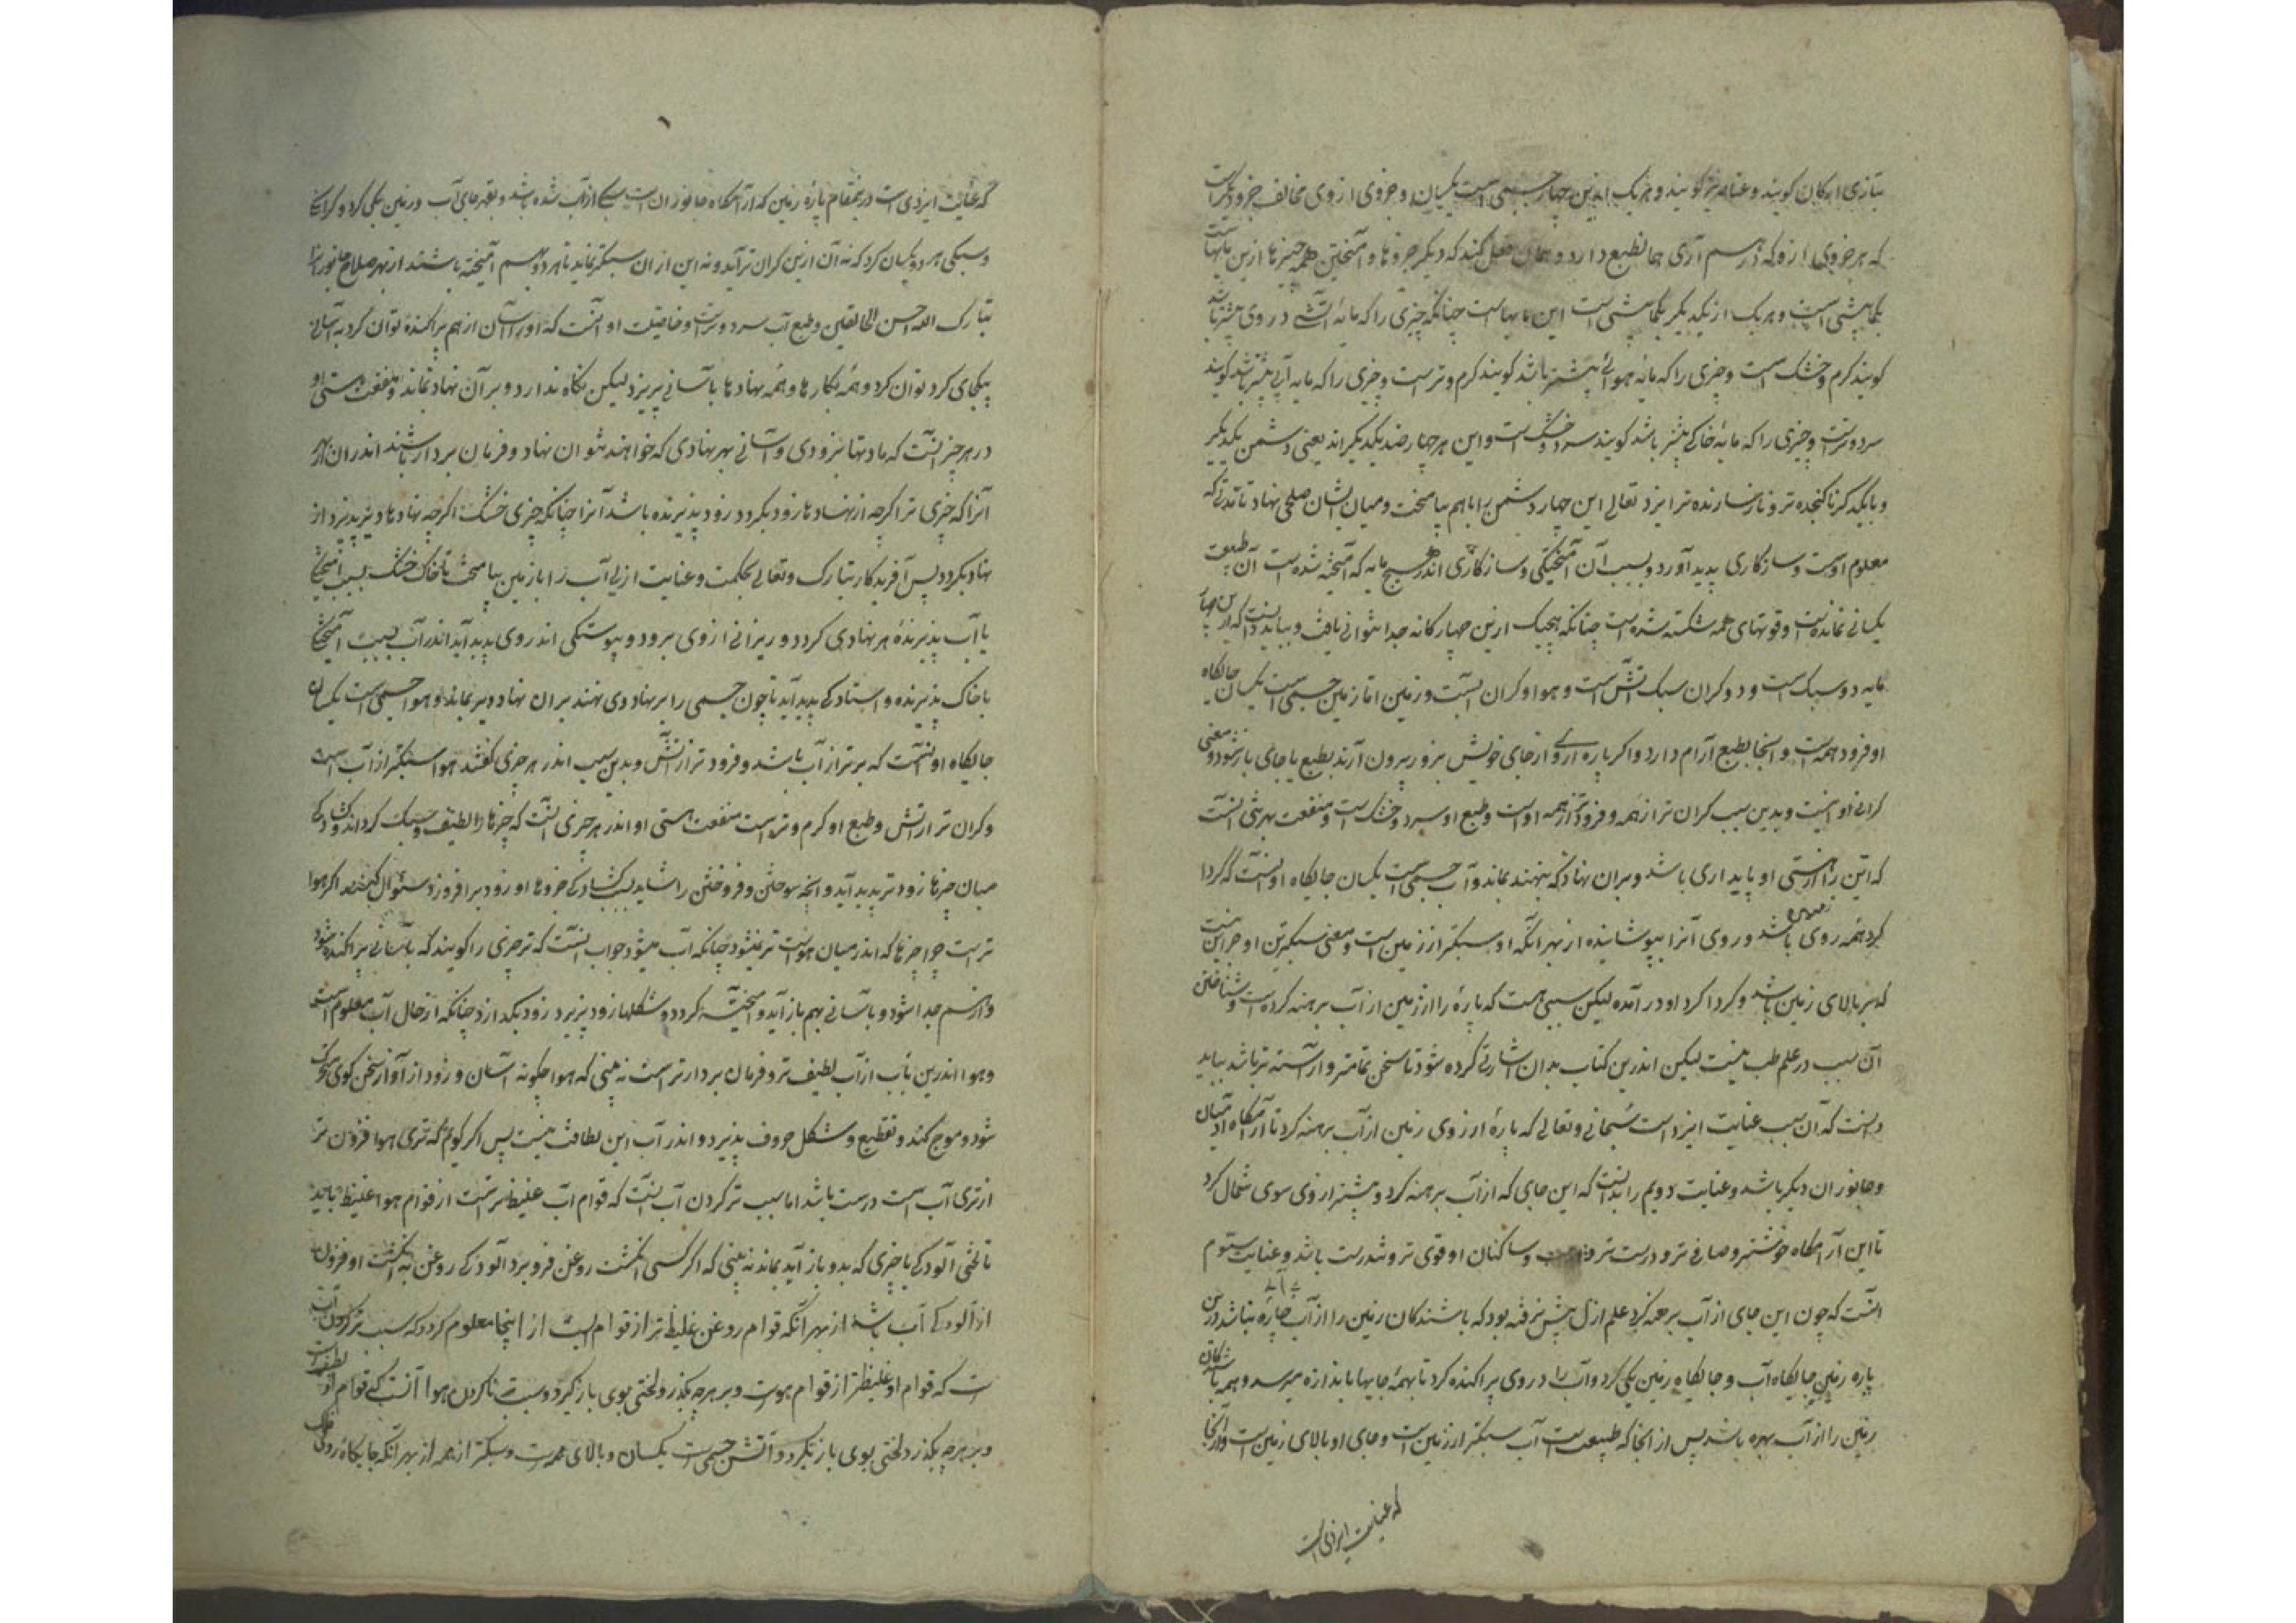 بتازی ارکان کویند و عناصر نیز کویند و هر یک ازین چهار جسمی است یکسان و جزوی از وی مخالف جزو دیکر نیست
که هر جزوی ازو که بهم آری همان طبع دارد و همان فعل کند که دیکر جزوها و آمیختن همه چیزها ازین مایهاست
بکما بیشی است و هر یک از یکدیکر بکما بیشی است این مایهاست چنانکه چیزی را که مایه آتشی در وی بیشتر باشد
کویند کرم و خشک است و چیزی را که مایه هوائی بیشتر باشد کویند کرم و تر است و چیزی را که مایه آبی بیشتر باشد کویند
سرد و تر است و چیزی را که مایه خاکی بیشتر باشد کویند سرد و خشک است و این هر چهار ضد یکدیکراند یعنی دشمن یکدیکر
و با یکدکر ناکنجنده تر و ناسازنده تر ایزد تعالی این چهار دشمن را باهم بیامیخت و میان ایشان صلحی نهاد تا مدتی که
معلوم اوست و سازکاری پدید آورد و بسبب آن آمیختکی و سازکاری اندر هیچ مایه که آمیخته شده است آن طبیعت
یکسانی نمانده است و قوتهای همه شکسته شده است چنانکه هیچیک ازین چهارکانه جدا نتوانی یافت و بباید دانست که ازین چهار
مایه دو سبک است و دو کران سبک آتش است و هوا و کران آبست و زمین اما زمین جسمی است یکسان جایکاه
او فرود همه است و آنجا بطبع آرام دارد و اکر پاره ازو از جای خویش بزور بیرون آرند بطبع با جای باز شود و معنی
کرانی او اینست و بدین سبب کران تر از همه و فرودتر از همه اوست و طبع او سرد و خشک است و منفعت هستی آنست
که این را از هستی او پایداری باشد و بران نهاد که بنهند بماند و آب جسمی است یکسان جایکاه او آنست که کردا
کرد همه روی زمین باشد و روی آنرا بپوشانیده از بهر آنکه او سبکتر از زمین است و معنی سبکترین او جز این نیست
که بر بالای زمین باشد و کردا کرد او در آمده لیکن سببی هست که پاره را از زمین از آب برهنه کرده است و شناختن
آن سبب در علم طب نیست لیکن اندرین کتاب بدان اشارتی کرده شود تا سخن تمامتر و آراسته تر باشد بباید
دانست که آن سبب عنایت ایزد است سبحانه و تعالی که پاره از روی زمین از آب برهنه کرد تا آرامکاه آدمیان
و جانوران دیکر باشد و عنایت دویم را بدانست که این جای که از آب برهنه کرد و بیشتر از وی سوی شمال کرد
تا این آرامکاه خوشتر و صافی تر و درست تر و ساکنان او قوی تر و تندرست باشد و عنایت سیوم
آنست که چون این جای از آب برهنه کرد علم ازلی پیش رفته بود که باشندکان زمین را از آب چاره نباشد درین
پاره زمین جایکاه آب و جایکاه زمین یکی کرد و آب را در روی پراکنده کرد تا بهمه جایها باندازه میرسد و همه باشندکان
زمین را از آب بهره باشد پس از آنجا که طبیعت آب سبکتر از زمین است و جای او بالای زمین است و از آنجا
که عنایت ایزدی است
که عنایت ایزدی است درین مقام پاره زمین که آرامکاه جانوران است سبکی از آب شده باشد و بقهر جای آب و زمین یکی کرد و کرانی
و سبکی هر دو یکسان کرد که نه آن ازین کران تر آید و نه این از آن سبکتر نماید تا هر دو بهم آمیخته باشند از بهر صلاح جانوران را
تبارک الله احسن الخالقین و طبع آب سرد و تر است و خاصیت او آنست که او را آسان از هم پراکنده توان کرد به آسانی
یکجای کرد توان کرد و همه نکارها و همه نهادها باسانی پذیرد لیکن نکاه ندارد و بر آن نهاد نماند و منفعت هستی او
در هر چیز آنست که مادتها بزودی و آسانی بهر نهادی که خواهند بتوان نهاد و فرمان بردار باشند اندران از بهر
آنرا که چیزی تر اکرچه از نهادها زود بکردد زود پذیرنده باشد آنرا چنانکه چیزی خشک اکرچه نهادها دیر پذیرد از
نهاد بکردد پس آفریدکار تبارک و تعالی بحکمت و عنایت ازلی آب را با زمین بیامیخت تا خاک خشک بسبب آمیختن
با آب پذیرنده هر نهادی کردد و ریزانی از وی برود و پیوستکی اندر وی پدید آید و اندر آب بسبب آمیختن
با خاک پذیرنده و استادکی پدید آید تا چون جسمی را بر نهادی نهند بران نهاد دیر بماند و هوا جسمی است یکسان
جایکاه او آنست که برتر از آب باشد و فرودتر از آتش و بدین سبب اندر هر چیزی کفتند هوا سبکتر از آب است
و کران تر از آتش و طبع او کرم و تر است منفعت هستی او اندر هر چیزی آنست که چیزها را لطیف و سبک کرداند و کشادکی
میان چیزها زودتر پدید آید و آنچه سوختن و فروختن را شاید بسبب کشادکی جزوها او زود برافروزد سئوال کنند اکر هوا
تر است چرا چیزها که اندر میان هواست تر نمیشود چنانکه آب میشود جواب آنست که تر چیزی را کویند که باسانی پراکنده شود
و از هم جدا شود و باسانی بهم باز آید و آمیخته کردد و شکلها زود پذیرد زود بکذارد چنانکه از حال آب معلوم است
و هوا اندرین باب از آب لطیف تر و فرمان بردارتر است نه بینی که هوا چکونه آسان و زود از آواز سخن کوی متحرک
شود و موج کند و تقطیع و شکل حروف پذیرد و اندر آب این لطافت نیست پس اکر کویم که تری هوا فزون تر
از تری آب است درست باشد اما سبب تر کردن آب آنست که قوام آب غلیظ تر است از قوام هوا غلیظ باید
تا لختی آلودکی با چیزی که بدو باز آید بماند نه بینی که اکر کسی انکشت روغن فرو برد آلودکی روغن به انکشت او فزون
از آلودکی آب باشد از بهر آنکه قوام روغن غلیظ تر از قوام آبست از اینجا معلوم کردد که سبب تر کردن آب آن
است که قوام او غلیظتر از قوام هواست و بر هرچه بکذرد لختی بوی باز کیرد و سبب تر ناکردن هوا آنست که قوام او لطیف است
و بر هرچه بکذرد لختی بوی باز نکیرد و آتش جسمی است یکسان و بالای همه است و سبکتر از همه از بهر آنکه جایکاه وی